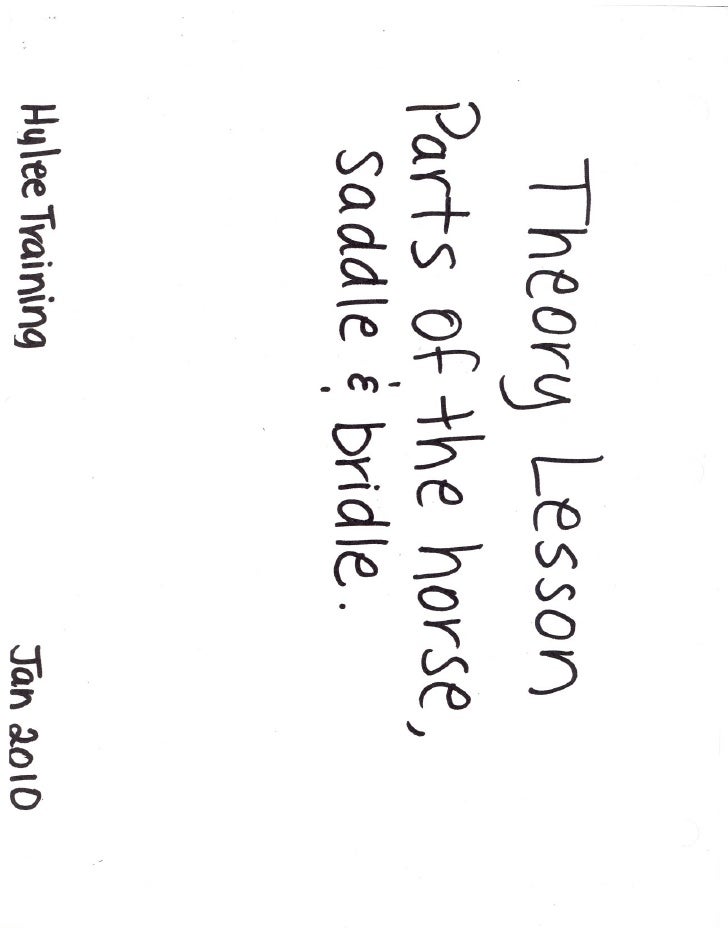 Theory Lesson
Parts of the horse,
saddle & bridle.
Hylee Training
Jan 2010